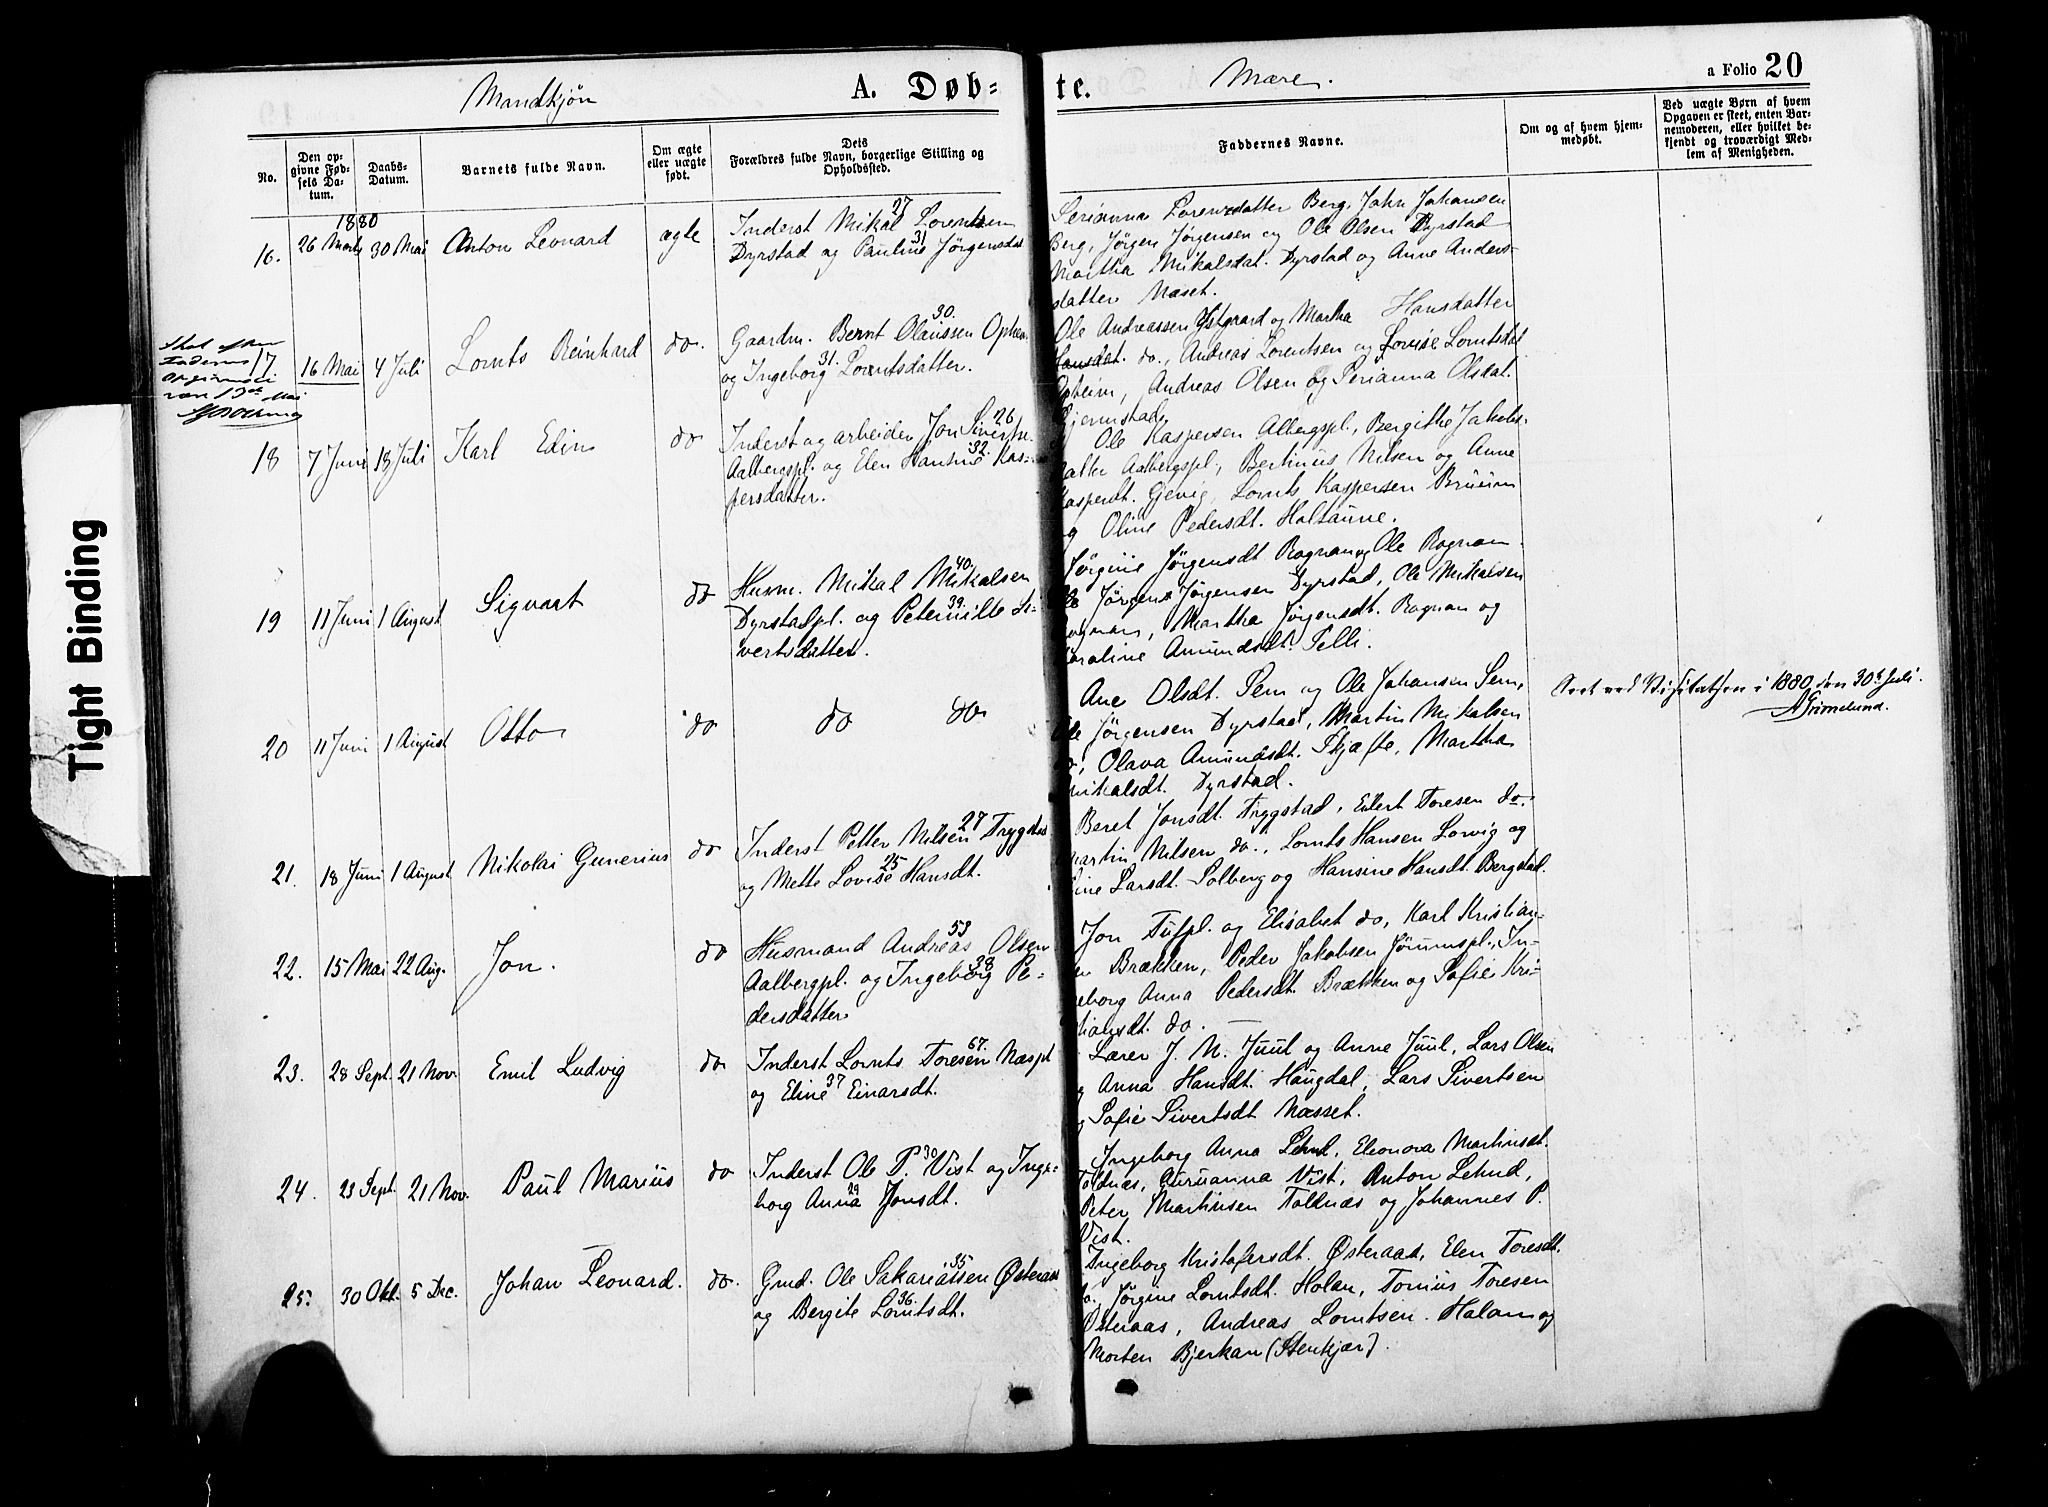 Tight Binding
Mandkjøn A. Døb=
te. Mære. a Folio 20
No.
Den op-
givne Fød-
sels Da-
tum.
Daabs-
Datum.
Barnets fulde Navn.
Om ægte
eller uægte
født.
Dets
Forældres fulde Navn, borgerlige Stilling og
Opholdssted.
Faddernes Navne.
Om og af hvem hjem-
medøbt.
Ved uægte Børn af hvem
Opgaven er skeet, enten Bar-
nemoderen, eller hvilket be-
kjendt og troværdigt Med-
lem af Menigheden.
1880
16. 26 Marts 30 Mai Anton Leonard ægte
Inderst Mikal 27 Lorentsen
Dyrstad og Pauline 31 Jørgensdat
Serianna Lorentsdatter Berg, John Johansen
Berg, Jørgen Jørgensen og Ole Olsen Dyrstad
Martha Mikalsdat. Dyrstad og Anne Anders-
datter Næset.
17. 16 Mai 4 Juli Lornts Reinhard do.
Gaardm. Bernt Olaussen 30. Opheim
og Ingeborg 31. Lorentsdatter.
Ole Andreassen Ystgaard og Martha Hansdatter
Hansdat. do., Andreas Lorentsen og Lovise Lorntsdat
Opheim, Andreas Olsen og Serianna Olsdat.
Hjermstad
18 7 Juni 18 Juli Karl Edin do
Inderst og arbeider Jon Sivertsen 26
Aalbergspl. og Elen Hansine 32. Kas-
persdatter.
Ole Kaspersen Albergspl., Bergithe Jakobs-
datter Aalbergspl., Bertinus Nilsen og Anne
Kaspersdt. Gjevig, Lornts Kaspersen Bruem
og Oline Pedersdt. Holtaune.
19 11 Juni 1 August Sigvart do
Husm. Mikal Mikalsen 40
Dyrstadpl. og Peternille 39. Si-
vertsdatter.
Jørgine Jørgensdt Rognan og Ole Rognan
Jørgen Jørgensen Dyrstad, Ole Mikalsen
Rognan, Martha Jørgensdt. Rognan og
Karoline Amundsdt. Selli.
20 11 Juni 1 August Otto do do do
Ane Olsdt. Sem og Ole Johansen Sem,
Ole Jørgensen Dyrstad, Martin Mikalsen
do, Olava Amundsdt. Skjefte, Martha
Mikalsdt. Dyrstad.
Seet ved Visitatsen i 1880 den 30te Juli.
AGrimelund.
21. 18 Juni 1 August Nikolai Gunerius do
Inderst Petter Nilsen 27 Trygstad
og Mette Lovise 25 Hansdt.
Beret Jonsdt. Trygstad, Eilert Toresen do.
Martin Nilsen do., Lornts Hansen Lorvig og
Larsdt. Solberg og Hansine Hansdt. Bergstad.
22. 15 Mai 22 Aug. Jon. do
Husmand Andreas 53 Olsen
Aalbergpl. og Ingeborg 38 Pe-
dersdatter
Jon Tufpl. og Elisabet do, Karl Kristian-
sen Brækken, Peder Jakobsen Jørumspl., In-
geborg Anna Pedersdt. Brækken og Sofie Kri-
stiansdt. do.
23. 28 Sept. 21 Nov. Emil Ludvig do
Inderst Lornts Toresen 67. Næspl
og Eline 37 Einarsdt.
Lærer J. N. Juul og Anne Juul, Lars Olsen
og Anna Hansdt. Haugdal, Lars Sivertsen
og Sofie Sivertsdt Næsset.
24. 23 Sept. 21 Nov. Paul Marius do
Inderst Ole P. 30 Vist og Inge-
borg Anna 29 Jonsdt.
Ingeborg Anna Lehnd, Eleonora Martinsdt.
Toldnæs, Guruanna Vist, Anton Lehnd,
Peter Martinsen Toldnæs og Johannes P.
Vist.
25. 30 Okt. 5 Dec. Johan Leonard. do.
Grud. Ole Sakariassen 35 Østeraas
og Bergite Lorntsdt. 36.
Ingeborg Kristofersdt. Østeraas, Elen Toresdt.
do. Jørgine Lorntsdt. Holan, Tonius Toresen
Østeraas, Andreas Lorntsen Holan og
Morten Bjerkan (Stenkjær).